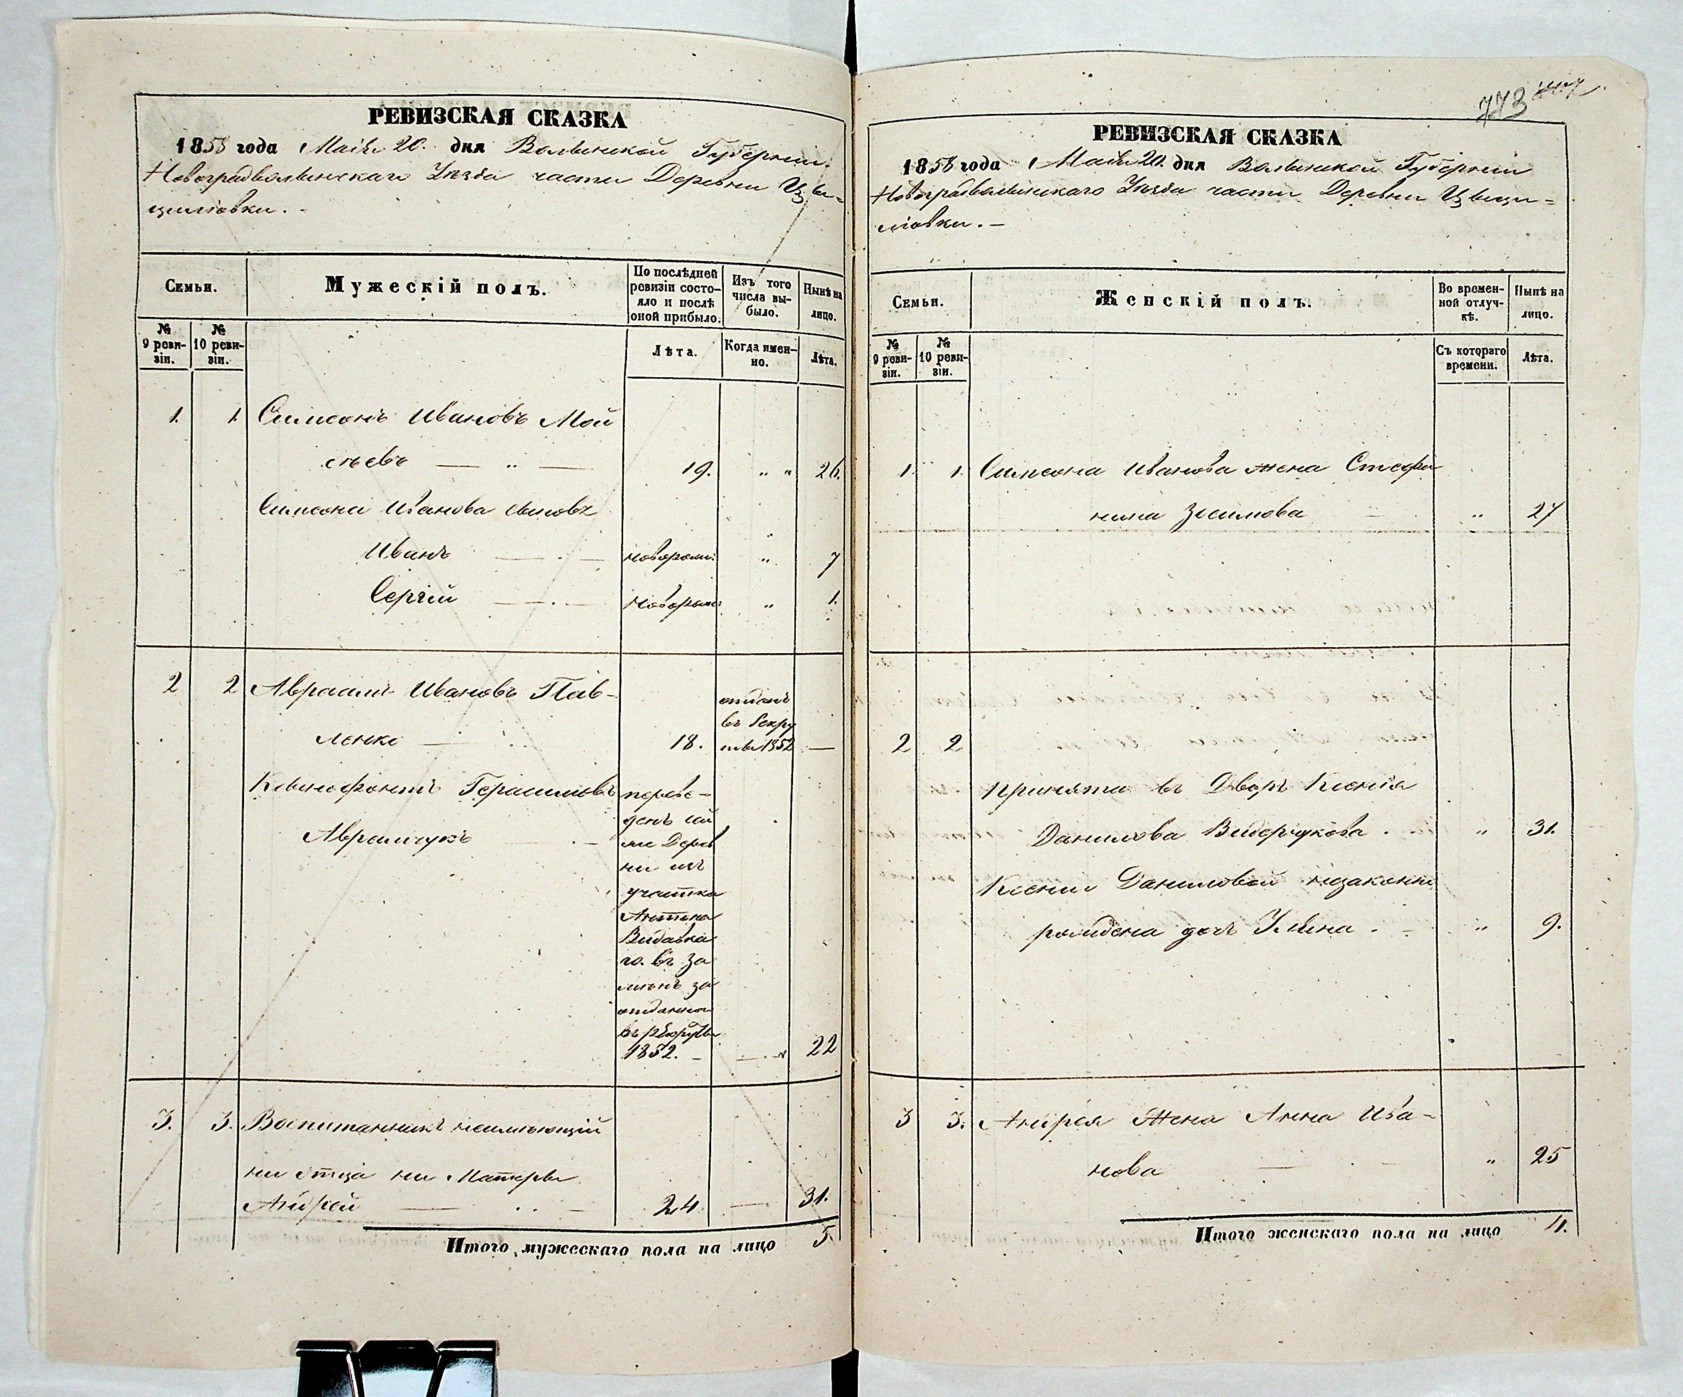 РЕВИЗСКАЯ СКАЗКА
1858 года Маія 20. дня Волынской Губерніи
Новоградволынскаго Уѣзда части Деревни Цви-
цимовки.
Семьи.
Мужескій полъ.
По послѣдней ревизіи состо-
яло и послѣ оной прибыло.
Изъ того числа вы-
было.
Нынѣ на лицо.
№ 9 реви-
зіи.
№ 10 реви-
зіи.
Лѣта.
Когда имен-
но.
Лѣта.
1. 1. Симеонъ Ивановъ Мой
сѣевъ 19. „ „ 26.
Симеона Иванова сыновъ
Иванъ новорож: „ 7
Сергій новорож: „ 1.
2 2 Авраамъ Ивановъ Пав-
ленко 18. отданъ въ Рекру 1852 —
Ксенофонтъ Герасимовъ
Аврамчукъ
переве-
денъ сей
же Дерев
ни изъ
участка
Антона
го въ за
мѣнъ за
отданного
въ рекруты
1852. — „ 22
3. 3. Воспитанникъ неимѣющій
ни отца ни Матери
Андрей 24 — 31.
Итого мужескаго пола на лицо 5.
773
РЕВИЗСКАЯ СКАЗКА
1858 года Маія 20. дня Волынской Губерніи
Новоградволынскаго Уѣзда части Деревни Цвици-
мовки. —
Семьи.
Женскій полъ.
Во времен-
ной отлуч-
кѣ.
Нынѣ на лицо.
№ 9 реви-
зіи.
№ 10 реви-
зіи.
Съ котораго времени.
Лѣта.
1. 1. Симеона Иванова жена Стефа
нина Зосимова „ 27
2 2
Принята въ Дворъ Ксенія
Данилова „ 31.
Ксеніи Даниловой незаконно
рождена дочь „ 9.
3 3. Андрея Жена Анна Ива-
нова „ 25
Итого женскаго пола на лицо 4.